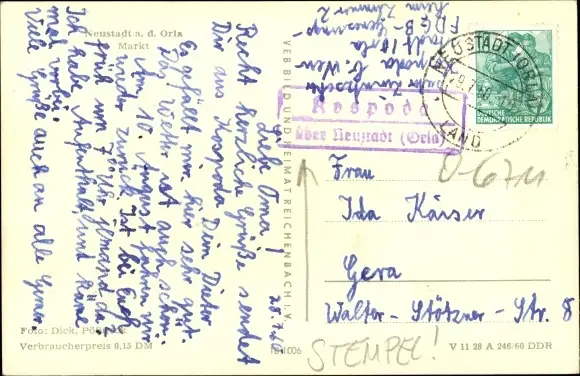 Neustadt a. d. Orla
Markt
28.7.60
Liebe Oma!
Recht herzliche Grüße sendet
Dir aus Kospoda Dein Dieter
Es gefällt mir hier sehr gut.
Das Wetter ist auch schön.
Am 15. August fahren wir
wieder zurück. Ist bei Euch
früh um 7 Uhr jemand da
Ich habe Aufenthalt und
mal vorbei.
Viele Grüße auch an alle
Foto: Dick,
Verbraucherpreis 0,15 DM
VEB BILD UND HEIMAT REICHENBACH I. V.
FDGB-Genesungs-
heim Zimmer 2
NEUSTADT (ORLA)
LAND
DEUTSCHE
DEMOKRATISCHE REPUBLIK
Kospoda
über Neustadt (Orla)
Frau
Ida Kaiser
Gera
Walter-Stötzner-Str. 8
STEMPEL!
V 11 28 A 246/60 DDR